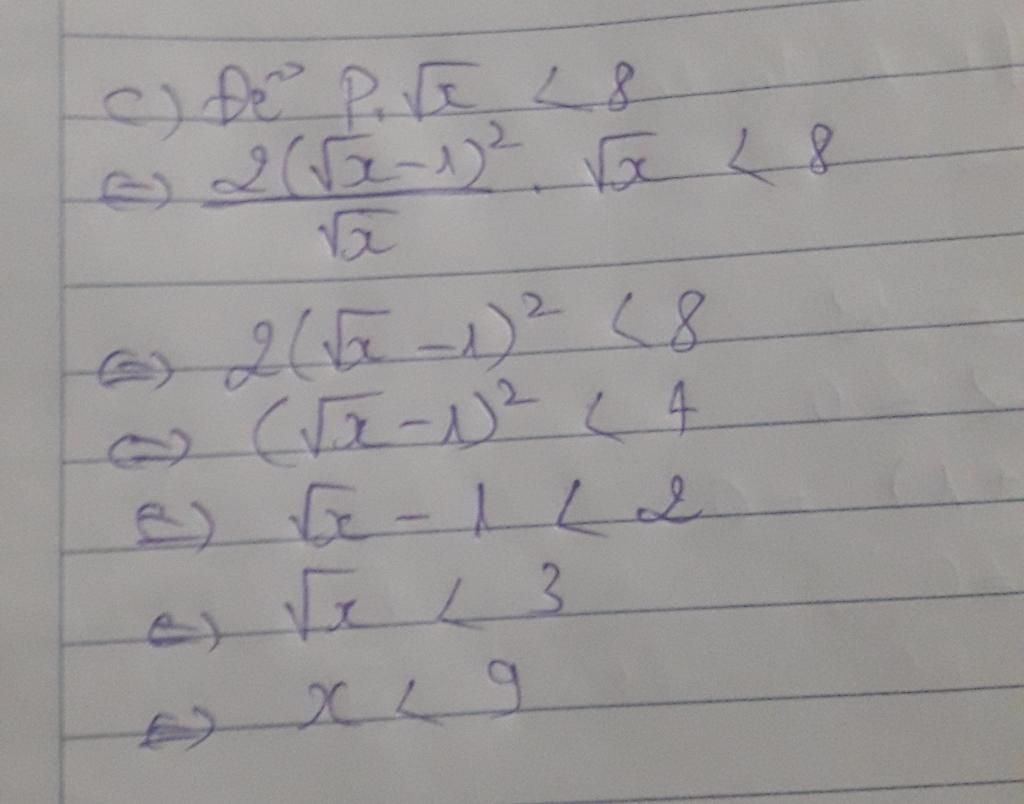 c) Để P.√x < 8
⇔ 2(√x-1)²/√x . √x < 8
⇔ 2(√x-1)² < 8
⇔ (√x-1)² < 4
⇔ √x - 1 < 2
⇔ √x < 3
⇔ x < 9